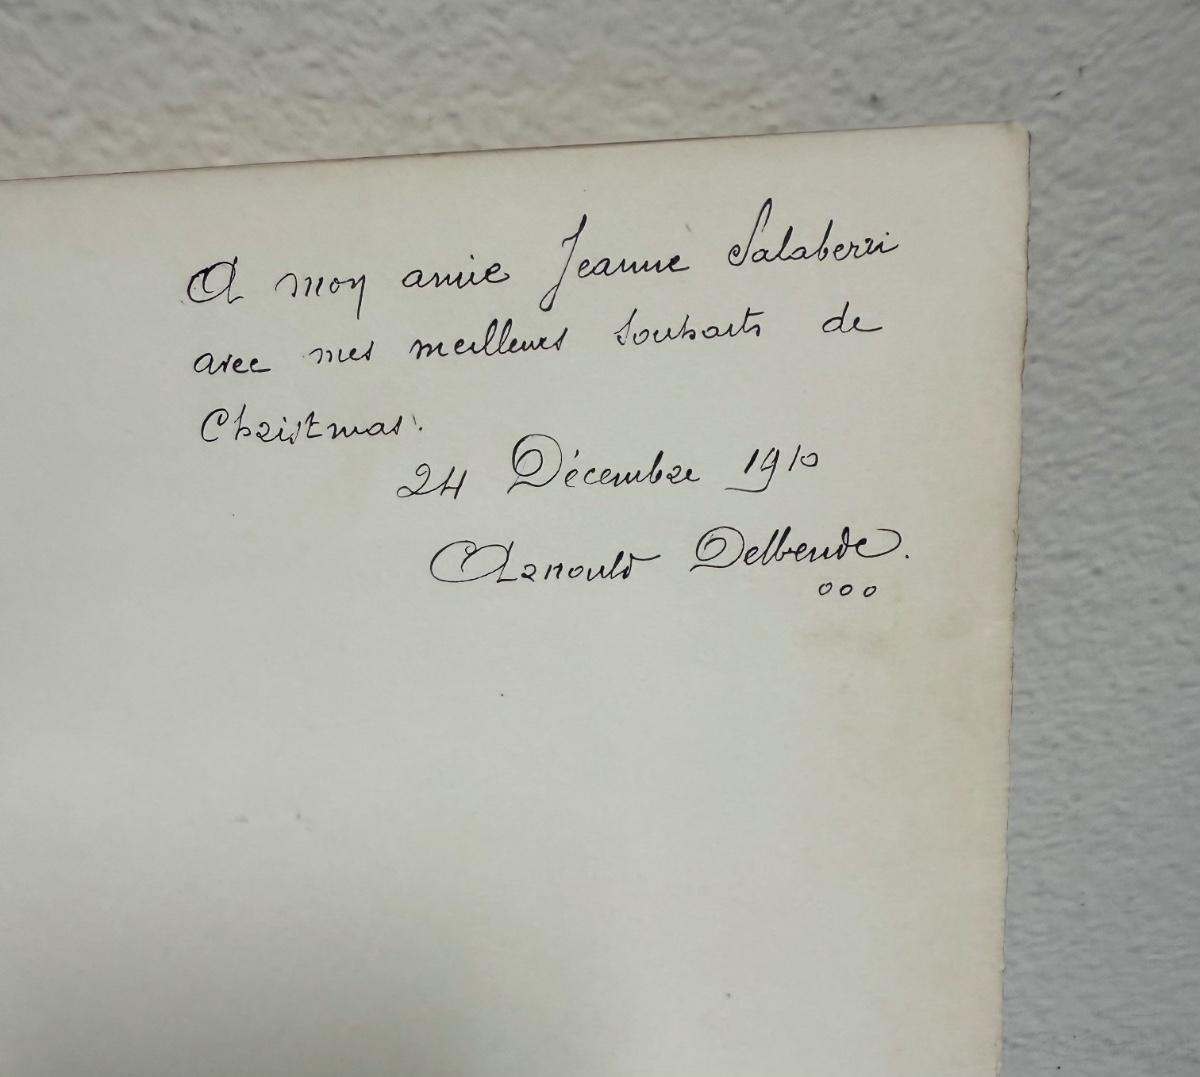 A mon amie Jeanne Salaberri
avec mes meilleurs souhaits de
Christmas.
24 Décembre 1910
Arnould Delbende.